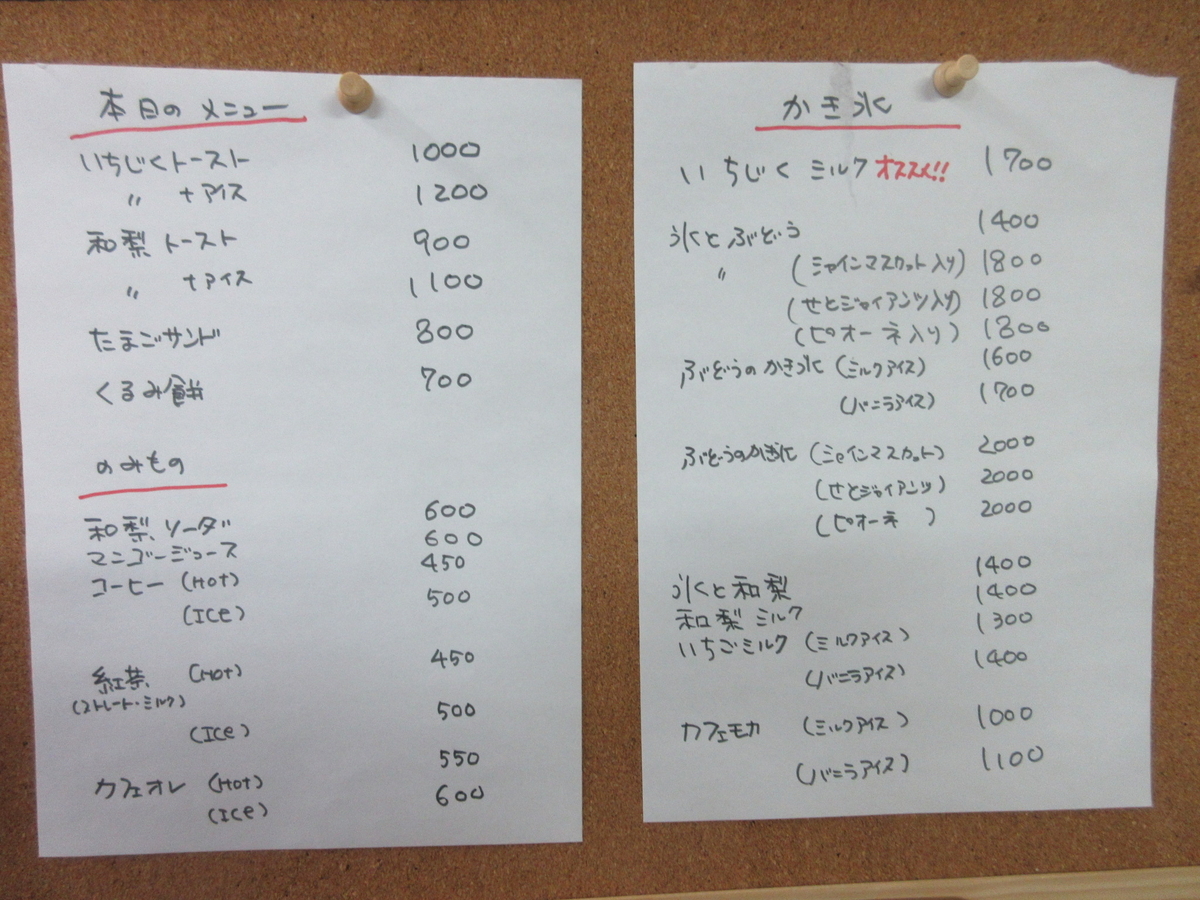 本日のメニュー
いちじくトースト 1000
〃 +アイス 1200
和梨トースト 900
〃 +アイス 1100
たまごサンド 800
くるみ餅 700
のみもの
和梨ソーダ 600
マンゴージュース 600
コーヒー (Hot) 450
(Ice) 500
紅茶 (Hot) 450
(ストレート・ミルク)
(Ice) 500
カフェオレ (Hot) 550
(Ice) 600
かき氷
いちじくミルク オススメ!! 1700
氷とぶどう 1400
〃 (シャインマスカット入り) 1800
(せとジャイアンツ入り) 1800
(ピオーネ入り) 1800
ぶどうのかき氷 (ミルクアイス) 1600
(バニラアイス) 1700
ぶどうのかき氷 (シャインマスカット) 2000
(せとジャイアンツ) 2000
(ピオーネ) 2000
氷と和梨 1400
和梨ミルク 1400
いちごミルク (ミルクアイス) 1300
(バニラアイス) 1400
カフェモカ (ミルクアイス) 1000
(バニラアイス) 1100